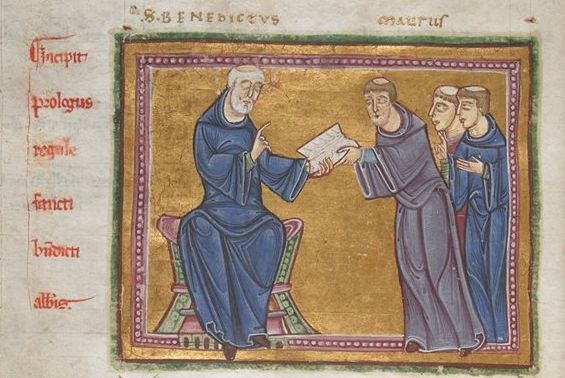 .S.BENEDICTVS MAURUS
Incipit
prologus
regule
sancti
bn̄dicti
abb̄is.